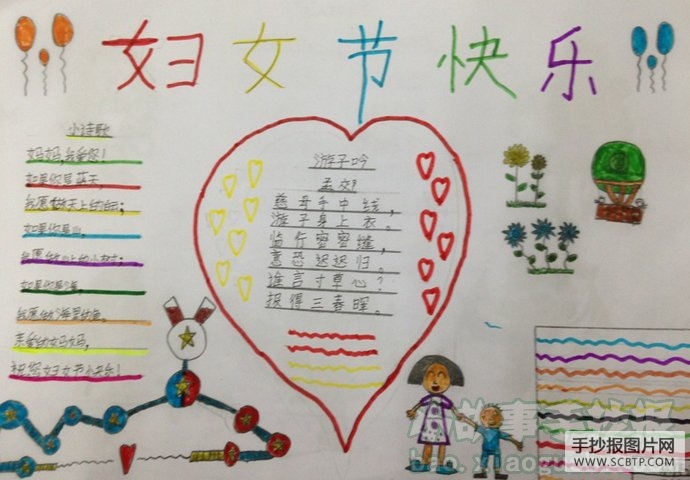 妇女节快乐
小诗歌
妈妈,我爱你!
如果你是蓝天,
我愿做天上的白云;
如果你是山,
我愿做山上的小树;
如果你是海,
我愿做海里的鱼。
亲爱的妈妈,
祝您妇女节快乐!
游子吟
孟郊
慈母手中线,
游子身上衣。
临行密密缝,
意恐迟迟归。
谁言寸草心?
报得三春晖。
手抄报图片网
WWW.SCBTP.COM